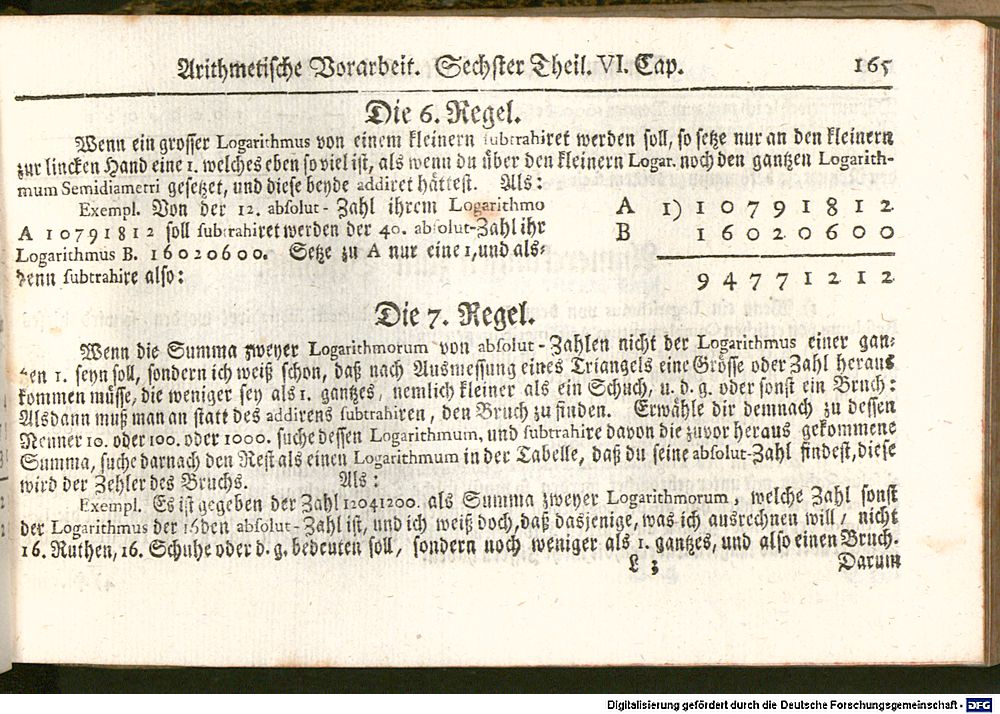 Arithmetische Vorarbeit. Sechster Theil. VI. Cap. 165
Die 6. Regel.
Wenn ein grosser Logarithmus von einem kleinern subtrahiret werden soll, so setze nur an den kleinern
zur lincken Hand eine 1. welches eben so viel ist, als wenn du über den kleinern Logar. noch den gantzen Logarith-
mum Semidiametri gesetzet, und diese beyde addiret hättest. Als:
Exempl. Von der 12. absolut-Zahl ihrem Logarithmo
A 10791812 soll subtrahiret werden der 40. absolut-Zahl ihr
Logarithmus B. 16020600. Setze zu A nur eine 1, und als-
denn subtrahire also:
A 1) 1 0 7 9 1 8 1 2
B 1 6 0 2 0 6 0 0
9 4 7 7 1 2 1 2
Die 7. Regel.
Wenn die Summa zweyer Logarithmorum von absolut-Zahlen nicht der Logarithmus einer gan-
tzen 1. seyn soll, sondern ich weiß schon, daß nach Ausmessung eines Triangels eine Grösse oder Zahl heraus
kommen müsse, die weniger sey als 1. gantzes, nemlich kleiner als ein Schuch, u. d. g. oder sonst ein Bruch:
Alsdann muß man an statt des addirens subtrahiren, den Bruch zu finden. Erwähle dir demnach zu dessen
Nenner 10. oder 100. oder 1000. suche dessen Logarithmum, und subtrahire davon die zuvor heraus gekommene
Summa, suche darnach den Rest als einen Logarithmum in der Tabelle, daß du seine absolut-Zahl findest, diese
wird der Zehler des Bruchs. Als:
Exempl. Es ist gegeben der Zahl 12041200. als Summa zweyer Logarithmorum, welche Zahl sonst
der Logarithmus der 16den absolut-Zahl ist, und ich weiß doch, daß dasjenige, was ich ausrechnen will, nicht
16. Ruthen, 16. Schuhe oder d. g. bedeuten soll, sondern noch weniger als 1. gantzes, und also einen Bruch.
L 3 Darum
Digitalisierung gefördert durch die Deutsche Forschungsgemeinschaft - DFG